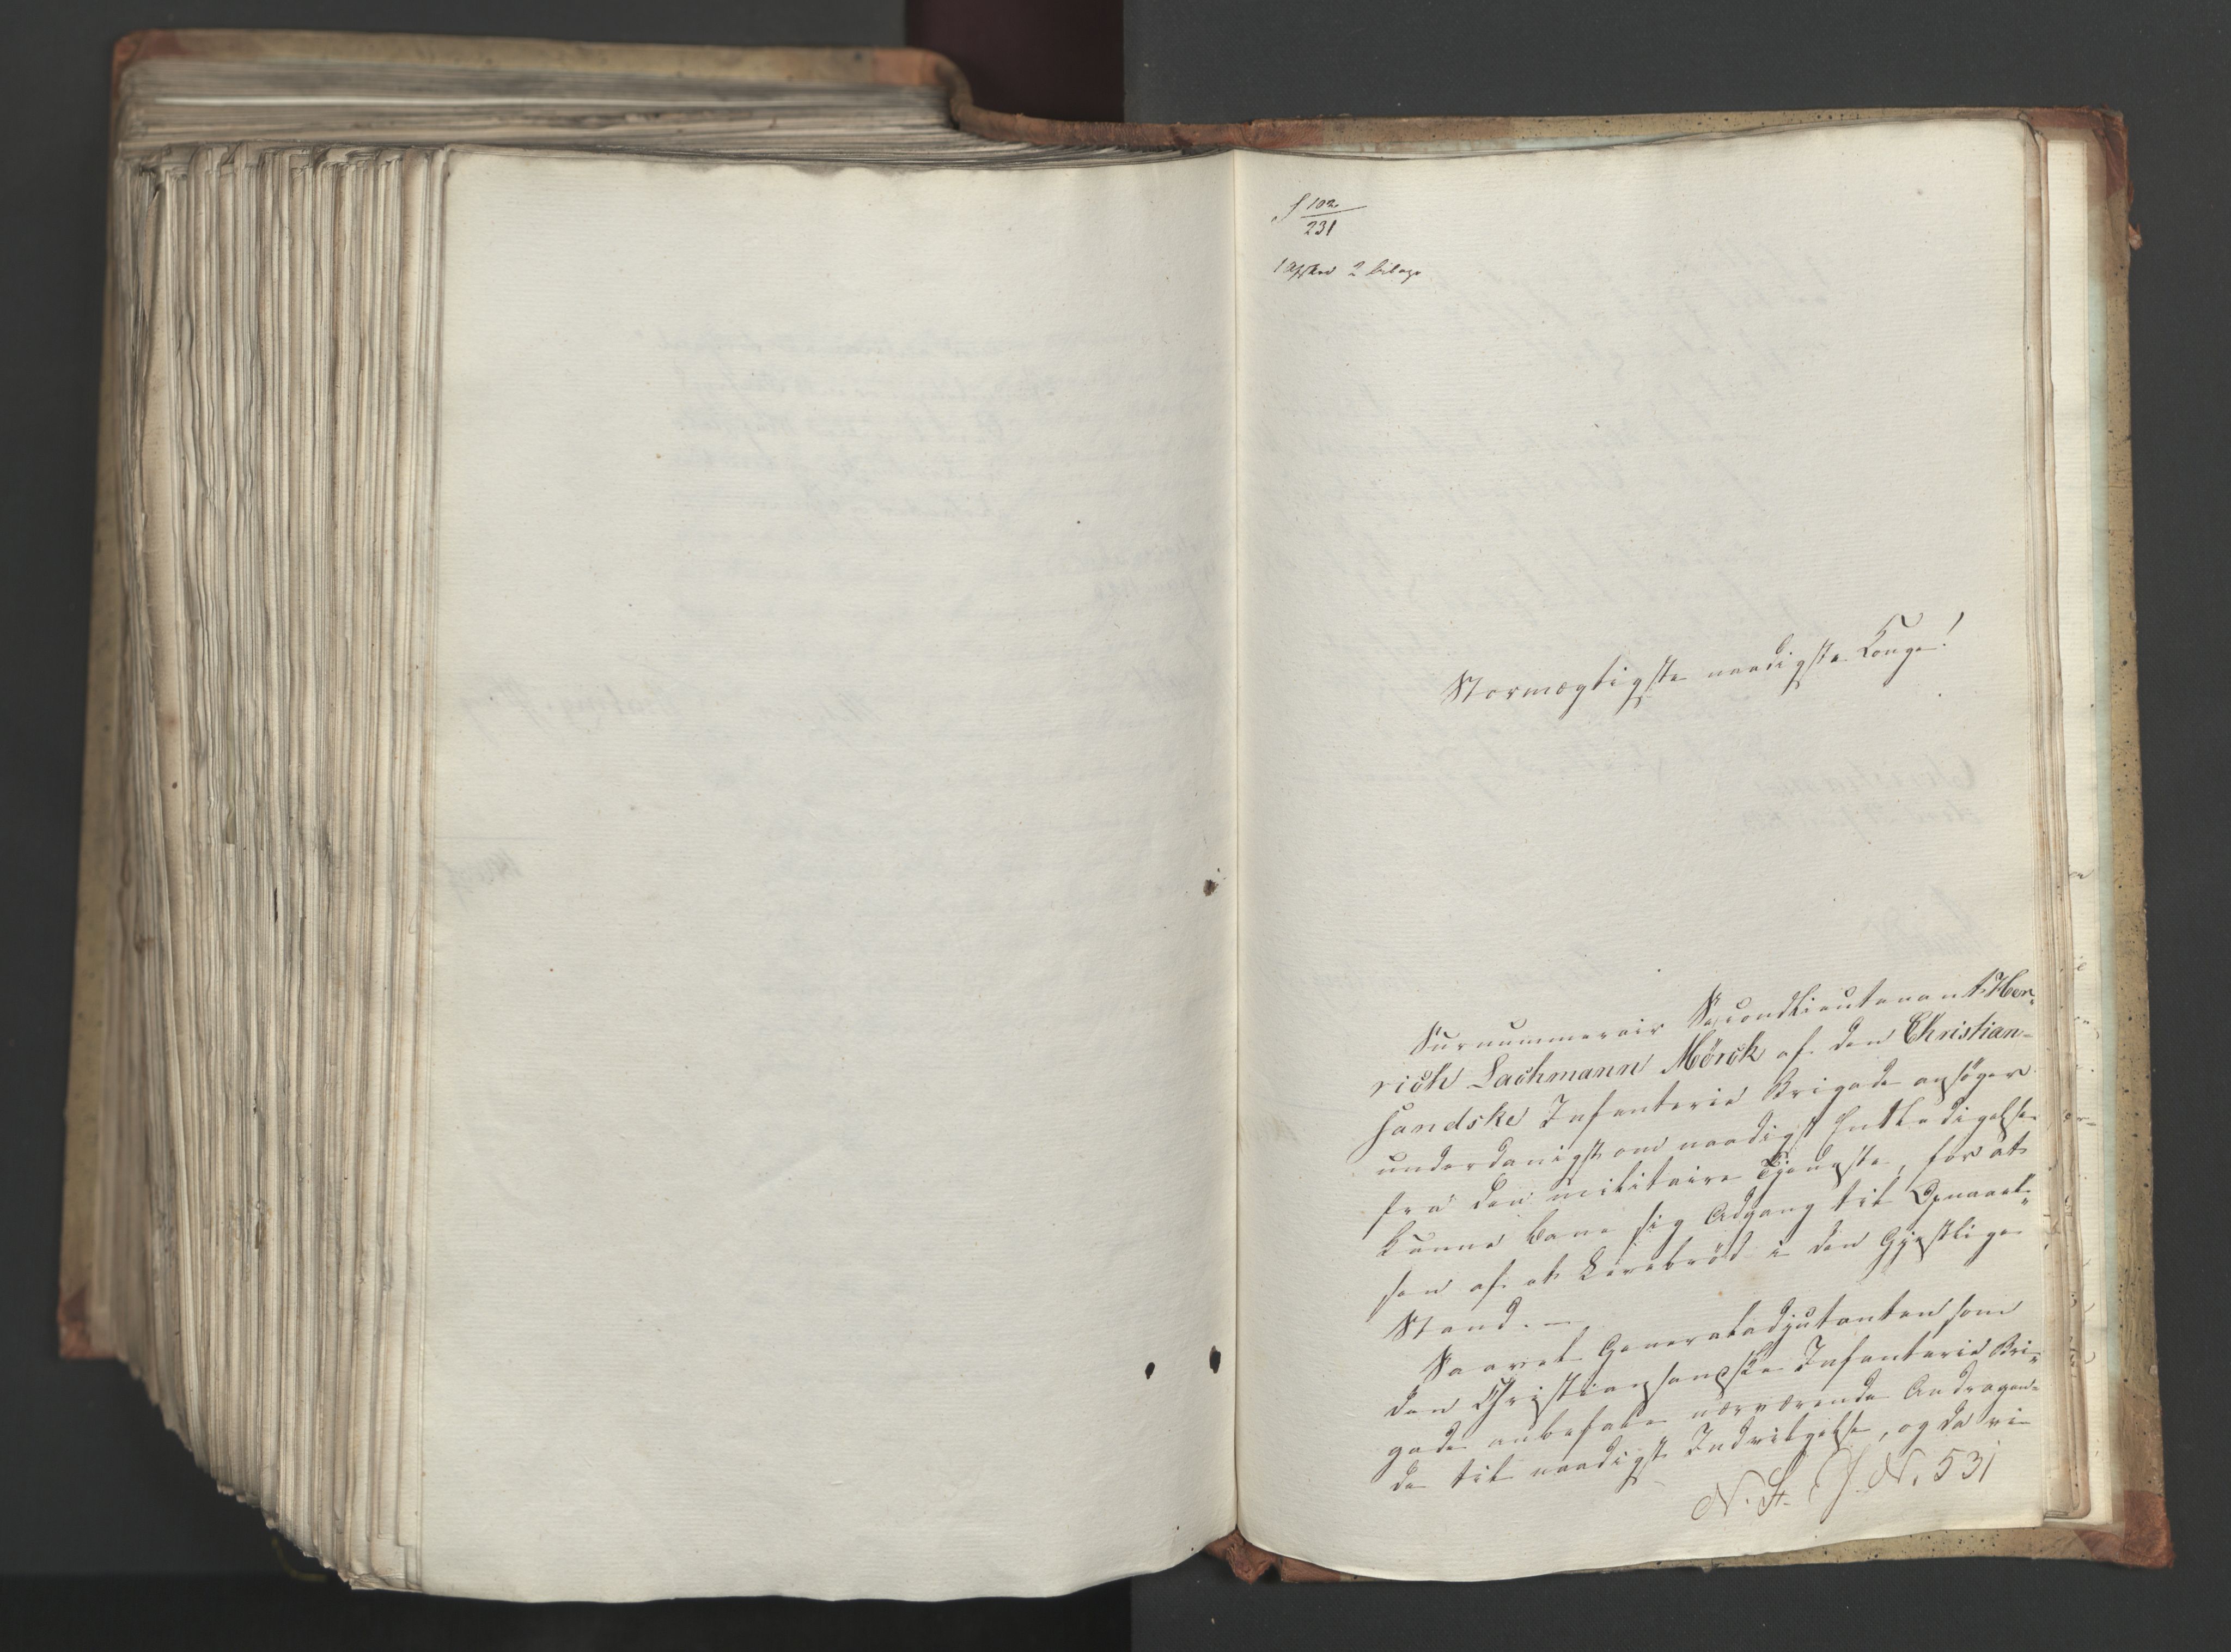 S 102
231
1 Afskr 2 bilage
Stormægtigste naadigste Konge!
Surnummerair Secondlieutenant Hen-
rich Lachmann Mörch af den Christian-
sandske Infanterie Brigade ansöger
underdanigst om naadigst Entledigelse
fra den militaire Tjeneste, for at
kunne bane sig Adgang til Opnaael-
sen af et Levebröd i den Gejstlige
Stand. -
Saavel Generaladjutanten som
den Christiansandske Infanterie Bri-
gade anbefale nærværende Andragen-
de til naadigst Indvilgelse, og da vi
N. St. J. N. 531